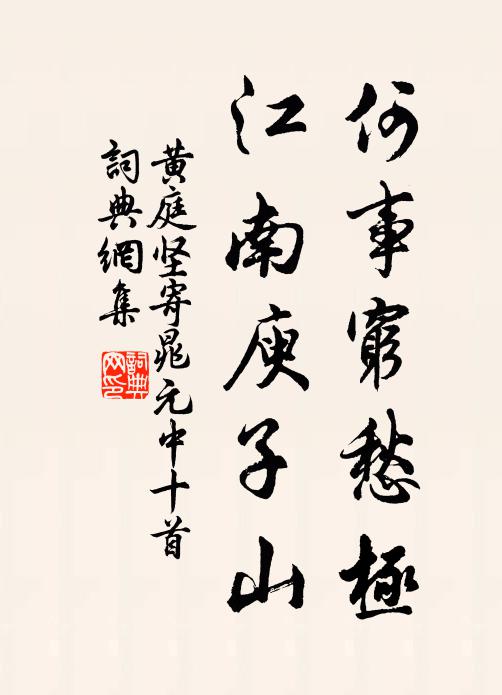 何事窮愁極
江南庾子山
黄庭坚寄晁元中十首
詞典網集
詞典網印